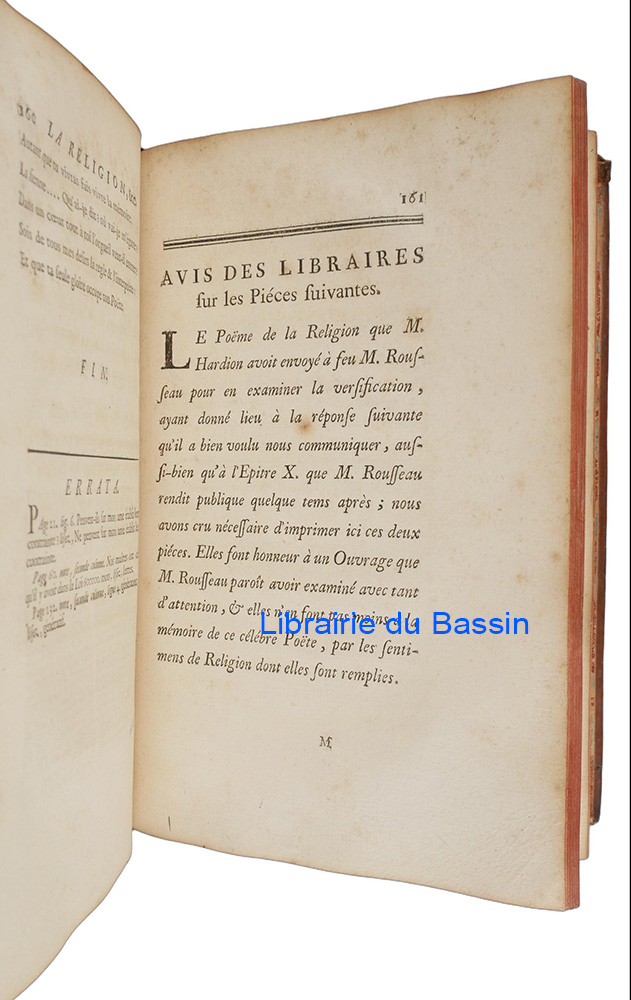 160 LA RELIGION, &c.
Autant que tu vivras fais vivre la mémoire.
La sienne..... Qu'ai-je dit? où vais-je m'égarer?
Dans un cœur tout à toi l'orgueil
Sois de tous mes desirs la regle & l'interprête:
Et que ta seule gloire occupe ton Poëte.
FIN.
ERRATA.
161
AVIS DES LIBRAIRES
ſur les Piéces ſuivantes.
LE Poëme de la Religion que M.
Hardion avoit envoyé à feu M. Rouſ-
ſeau pour en examiner la verſification,
ayant donné lieu à la réponſe ſuivante
qu'il a bien voulu nous communiquer, auſ-
ſi-bien qu'à l'Epitre X. que M. Rouſſeau
rendit publique quelque tems après; nous
avons cru néceſſaire d'imprimer ici ces deux
piéces. Elles font honneur à un Ouvrage que
M. Rouſſeau paroît avoir examiné avec tant
d'attention, & elles n'en font pas moins à la
mémoire de ce célébre Poëte, par les ſenti-
mens de Religion dont elles ſont remplies.
M.
Librairie du Bassin